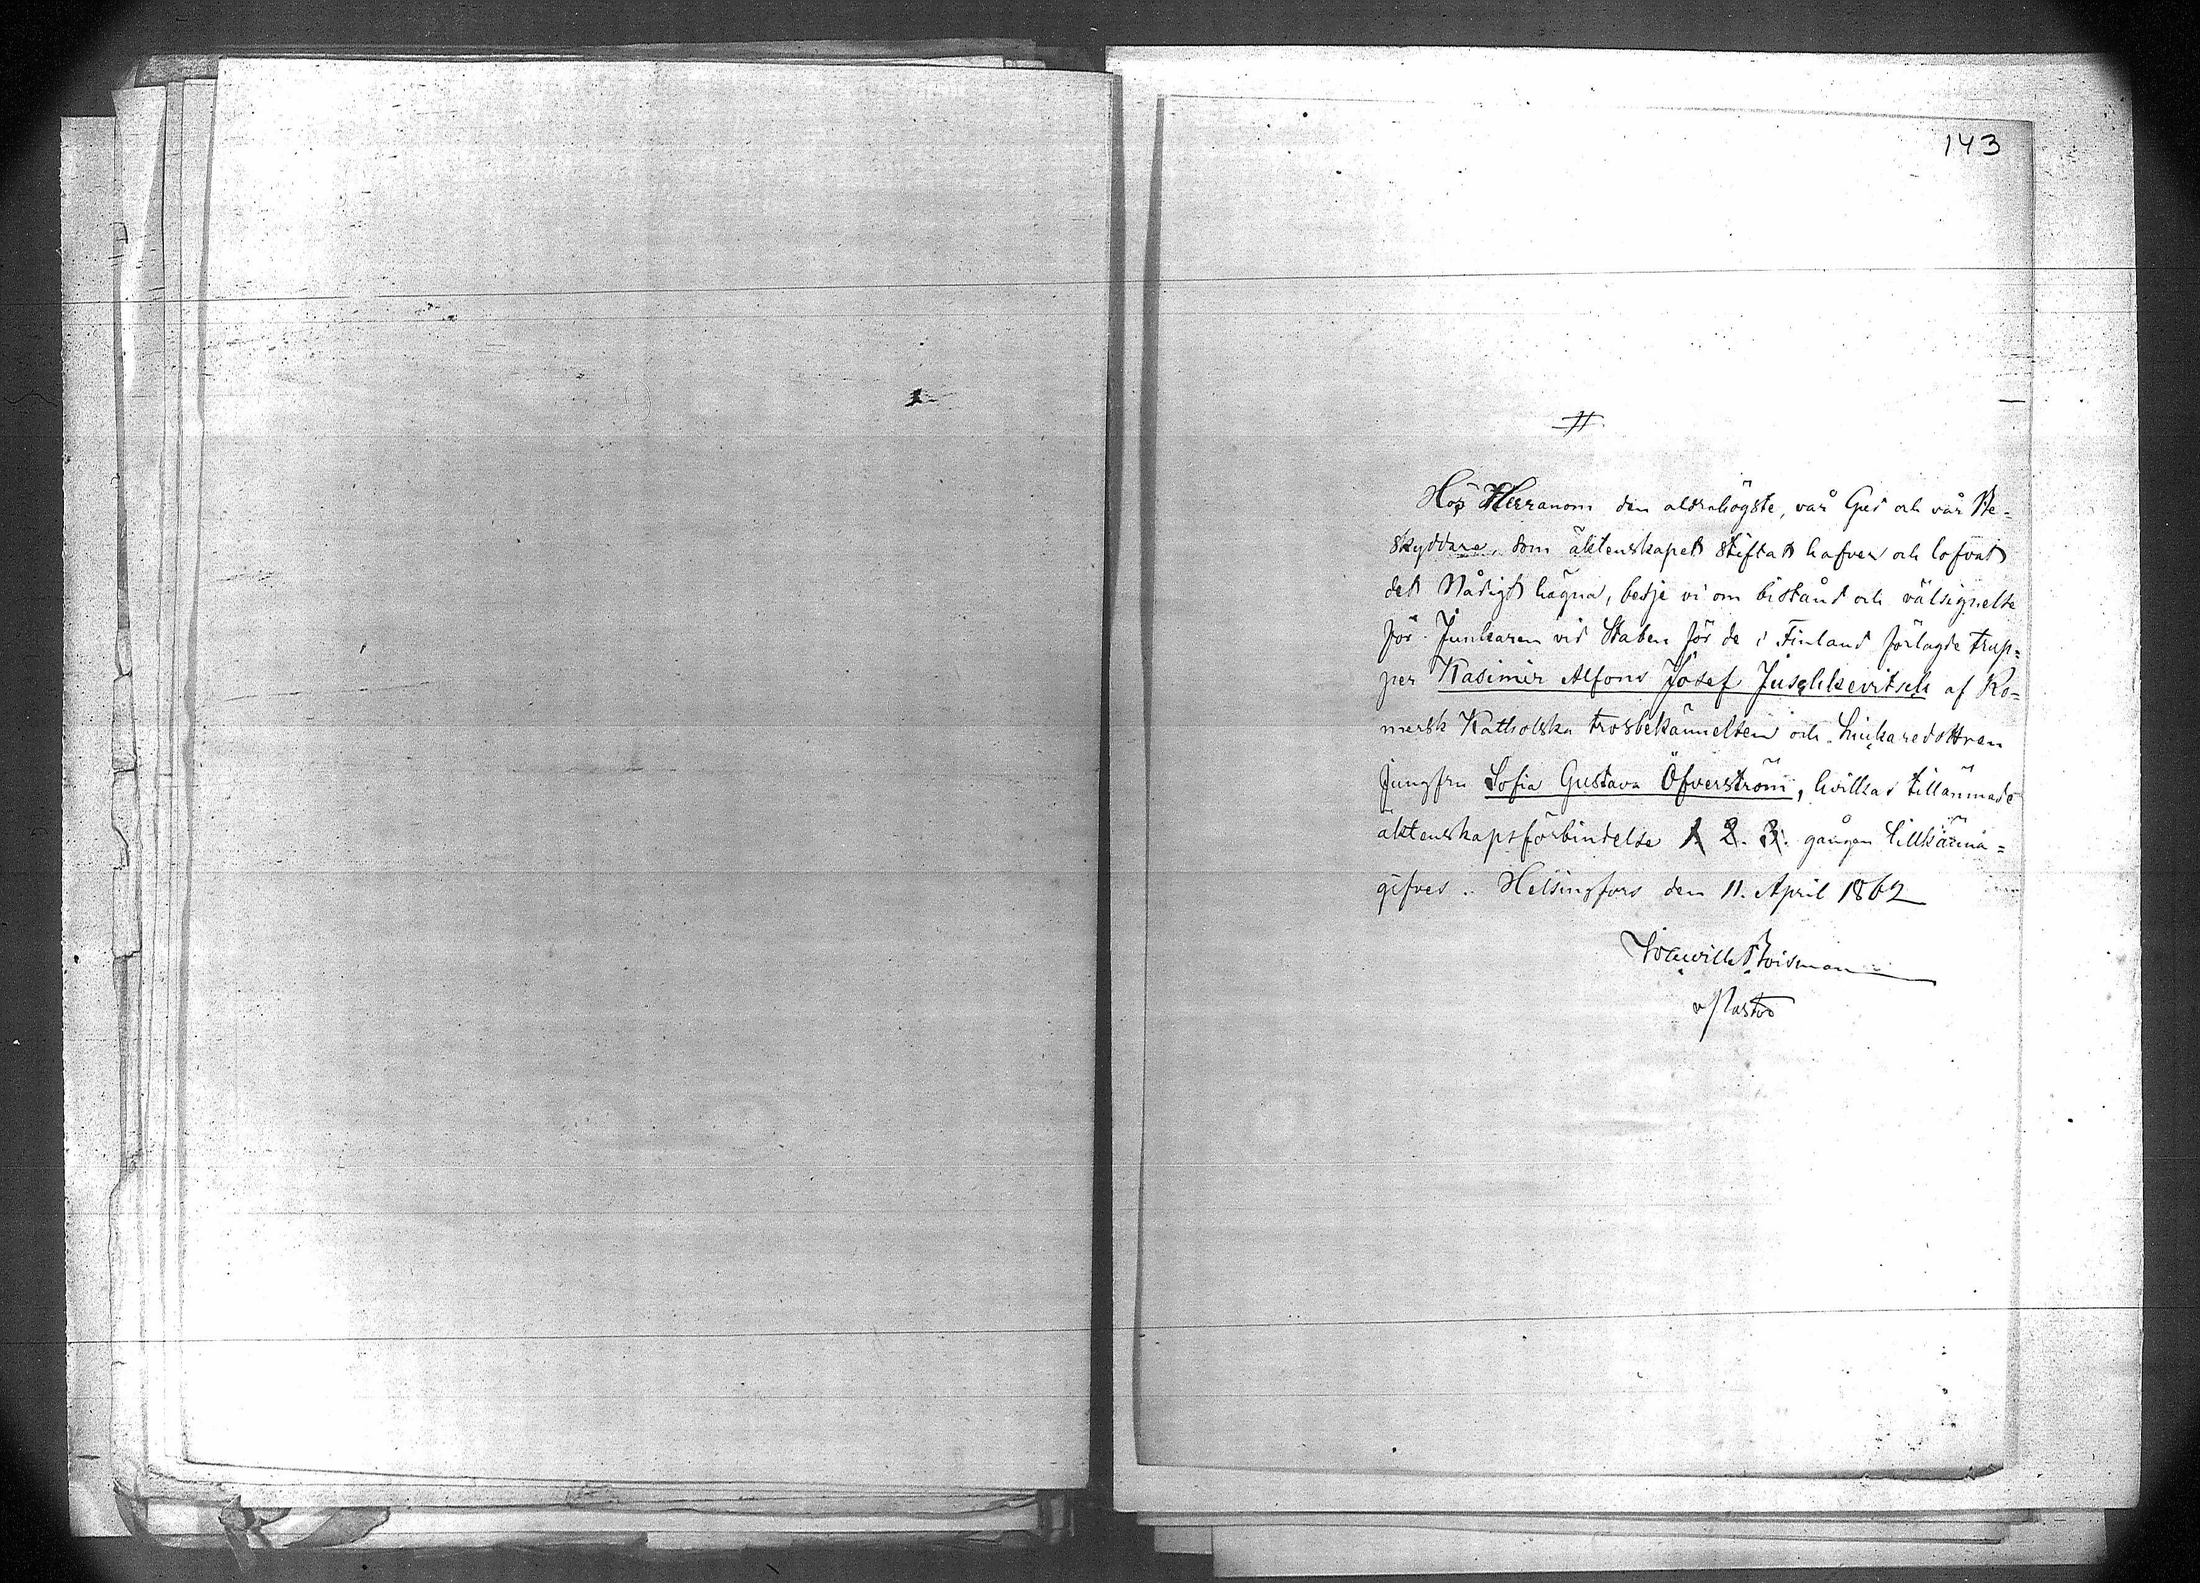 143
#
Hos Herranom den aldrahögste, vår Gud och vår Be=
skyddare, som äktenskapet stiftat hafver och lofvat
det Nådigt hägna, bedje vi om bistånd och välsignelse
för Junkaren vid Staben för de i Finland förlagde trup=
per Kasimir Alfons Josef Juschkevitsch af Ro=
mersk Katholska trosbekännelsen och Snickaredottren
jungfru Sofia Gustava Öfverström, hvilkas tillämnade
äktenskapsförbindelse 1. 2. 3. gången tillkänna=
gifves. Helsingfors den 11. April 1862
Boisman
v Pastor